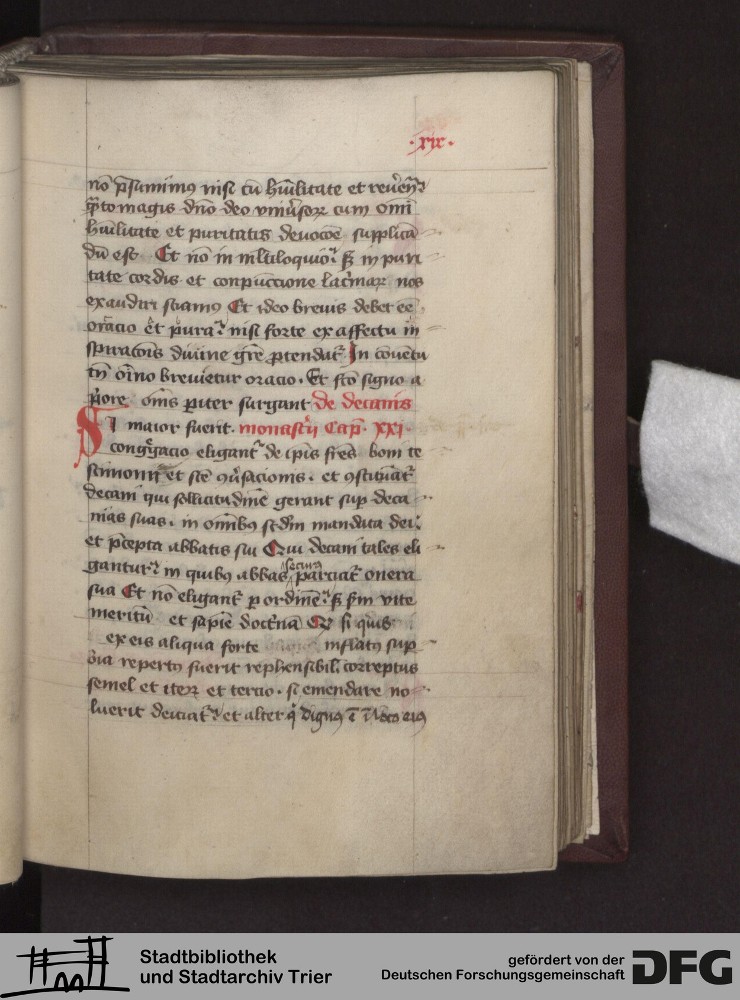 ·xix·
nō p̄sumimꝰ nisi cū hūilitate et reue͛n͛
q̄to magis dn̄o deo vniu͛soꝝ cum om̄i
hūilitate et puritatis deuocōe supplicā
dū est · Et nō in m̄ltiloquio ꝫ s̄ꝫ in puri
tate cordis et conpūccione lac͛maꝝ nos
exaudiri sciamꝰ Et ideo breuis debet eē
orācio et pura ꝫ nisi forte ex affectu in
spiracōis diuine gr̄e ꝓtendat᷑ In cōuētu
tn̄ oīno breuietur oracio · Et fcō signo a
p͛ore om̄s pariter surgant de decanis
SI maior fuerit · monast͛ii Cap̄ · xxi ·
congͣgacio eligant᷑ de ip̄is fr̄es boni te
stimonii et scē ꝯu͛sacionis · et ꝯstituāt᷑
decani qui sollicitudinē gerant sup̄ deca
nias suas · in om̄ibꝰ scd̄m mandata dei ·
et p̄cepta abbatis sui Qui decani tales eli
gantur ꝫ in quibꝰ abbas secur9 parciat᷑ onera
sua Et nō eligant᷑ ꝑ ordinē ꝫ s̄ꝫ scd̄m vite
meritū et sapiē doct͛nā Qꝫ si quis
ex eis aliqua forte inflatꝰ sup
bia repertꝰ fuerit rep̄hensibil̓ correptus
semel et iteꝝ et tercio · si emendare no
luerit deiciat᷑ ꝫ et alter q̄ dignꝰ ē ī loco eiꝰ
Stadtbibliothek
und Stadtarchiv Trier
gefördert von der
Deutschen Forschungsgemeinschaft
DFG